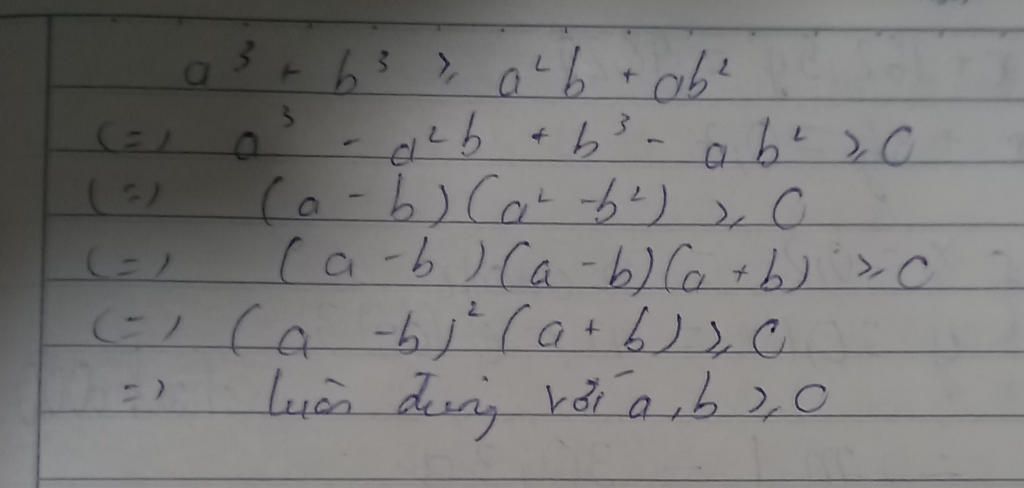 a³ + b³ ≥ a²b + ab²
(=) a³ - a²b + b³ - ab² ≥ 0
(=) (a - b)(a² - b²) ≥ 0
(=) (a - b)(a - b)(a + b) ≥ 0
(=) (a - b)² (a + b) ≥ 0
=) luôn đúng với a, b ≥ 0